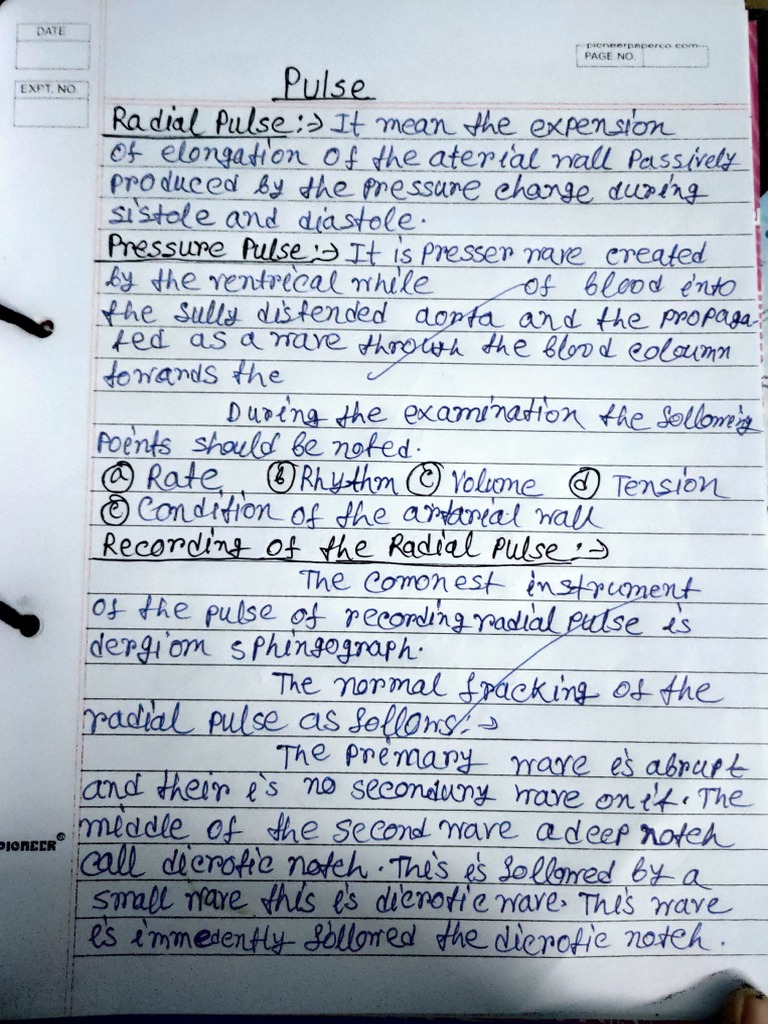 DATE
pioneerpaperco.com
PAGE NO.
EXPT. NO.
Pulse
Radial Pulse :→ It mean the expension
of elongation of the aterial wall Passively
produced by the pressure change during
sistole and diastole.
Pressure Pulse :→ It is presser wave created
by the ventrical while of blood into
the fully distended aorta and the propaga-
ted as a wave through the blood coloumn
towards the
During the examination the following
Points should be noted.
(a) Rate (b) Rhythm (c) Volume (d) Tension
(e) Condition of the artarial wall
Recording of the Radial Pulse :→
The comonest instrument
of the pulse of recording radial pulse is
dergiom sphingograph.
The normal fracking of the
radial pulse as follows :→
The primary wave is abrupt
and their is no secondury wave on it. The
middle of the second wave a deep notch
call dicrotic notch. This is followed by a
small wave this is dicrotic wave. This wave
is immedently followed the dicrotic notch.
PIONEER®